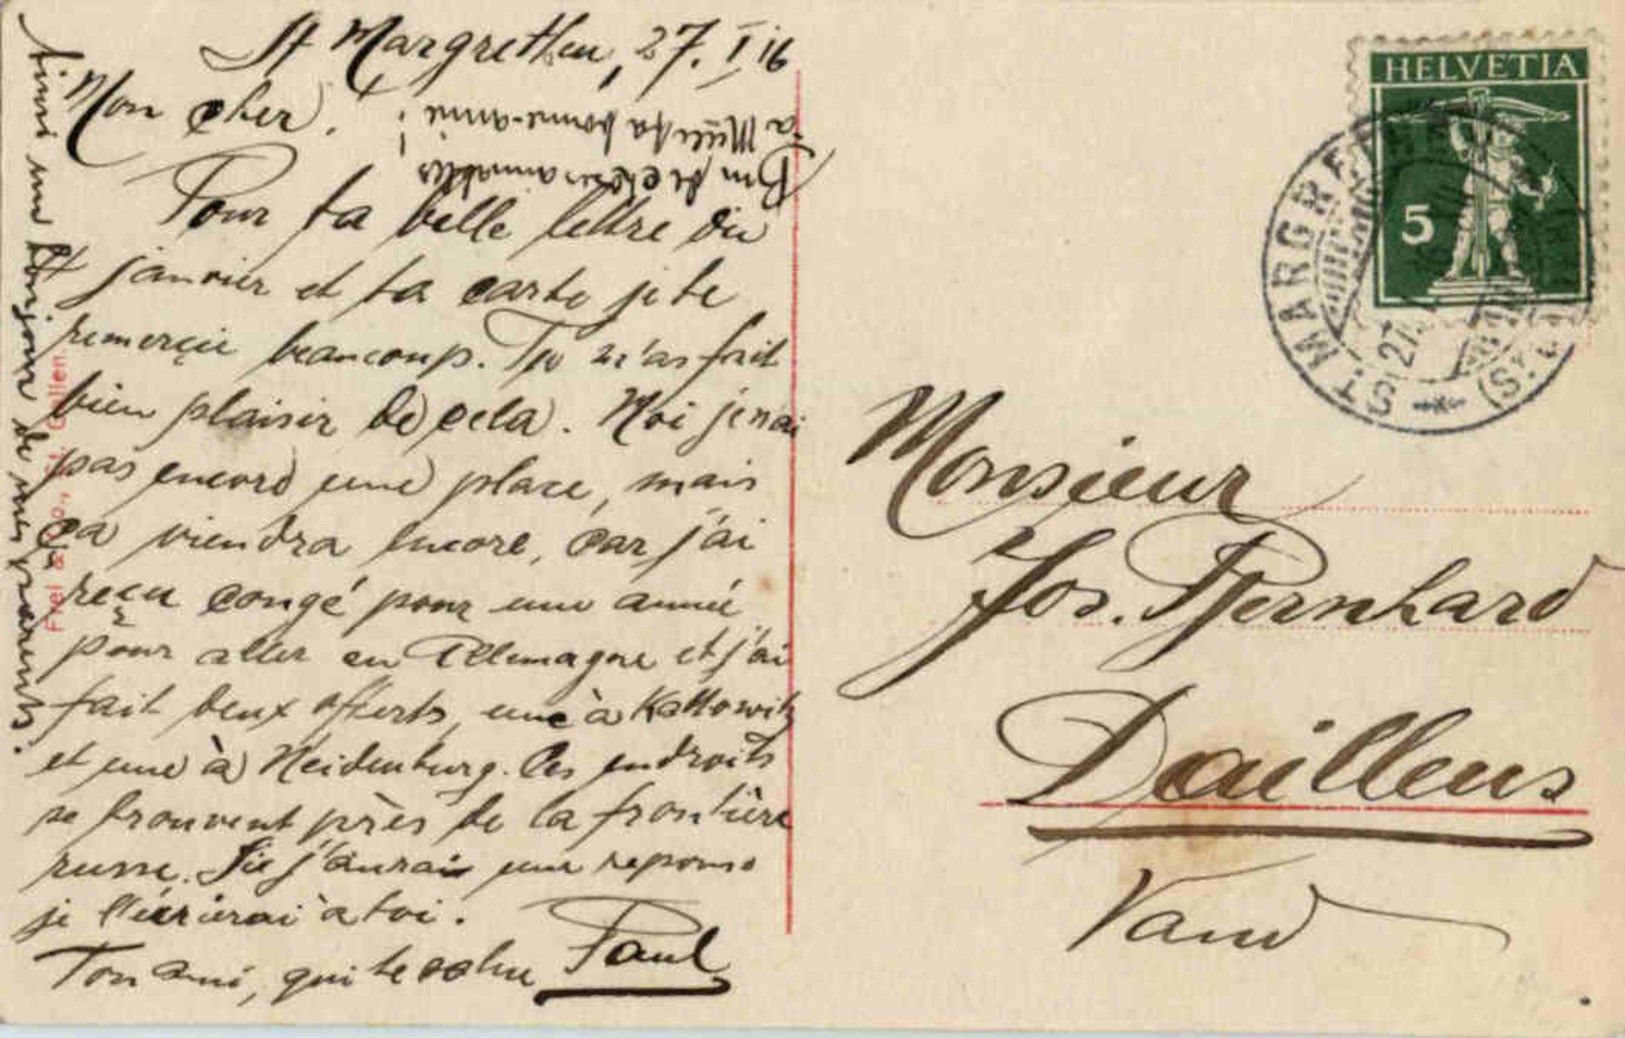 St Margrethen, 27. I. 16
Mon cher,
Pour ta belle lettre du
janvier et ta carte je te
remerçie beaucoup. Tu m'as fait
bien plaisir de cela. Moi je n'ai
pas encore une place, mais
ça viendra encore, car j'ai
reçu congé pour une année
pour aller en Allemagne et j'ai
fait deux offerts, une à Kattowitz
et une à Neidenburg. Ces endroits
se trouvent près de la frontière
russe. Sie j'aurai une reponse
je l'écrierai à toi.
Ton ami, qui te salue Paul
un bonjour de mes parents.
de choses aimables
à ta bonne-amie!
Frei & Co., St. Gallen
HELVETIA
5
ST. MARGRETHEN
27
(ST.
Monsieur
Jos. Bernhard
Daillens
Vaud